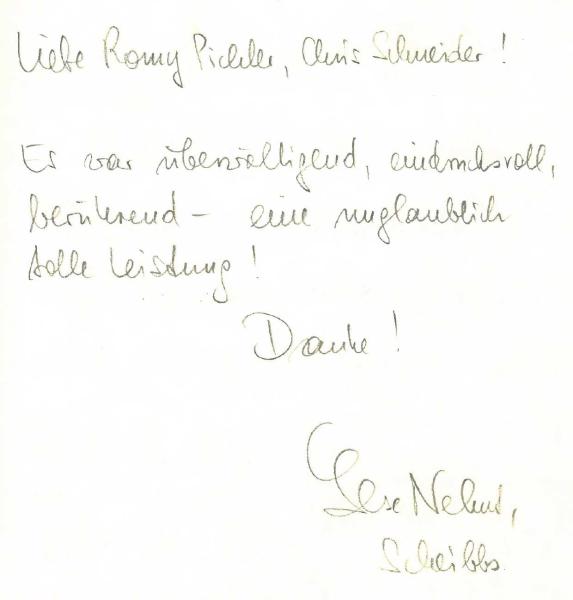 Liebe Romy Pichler, Chris Schneider!
Es war überwältigend, eindrucksvoll,
berührend – eine unglaublich
tolle Leistung!
Danke!
Scheibbs